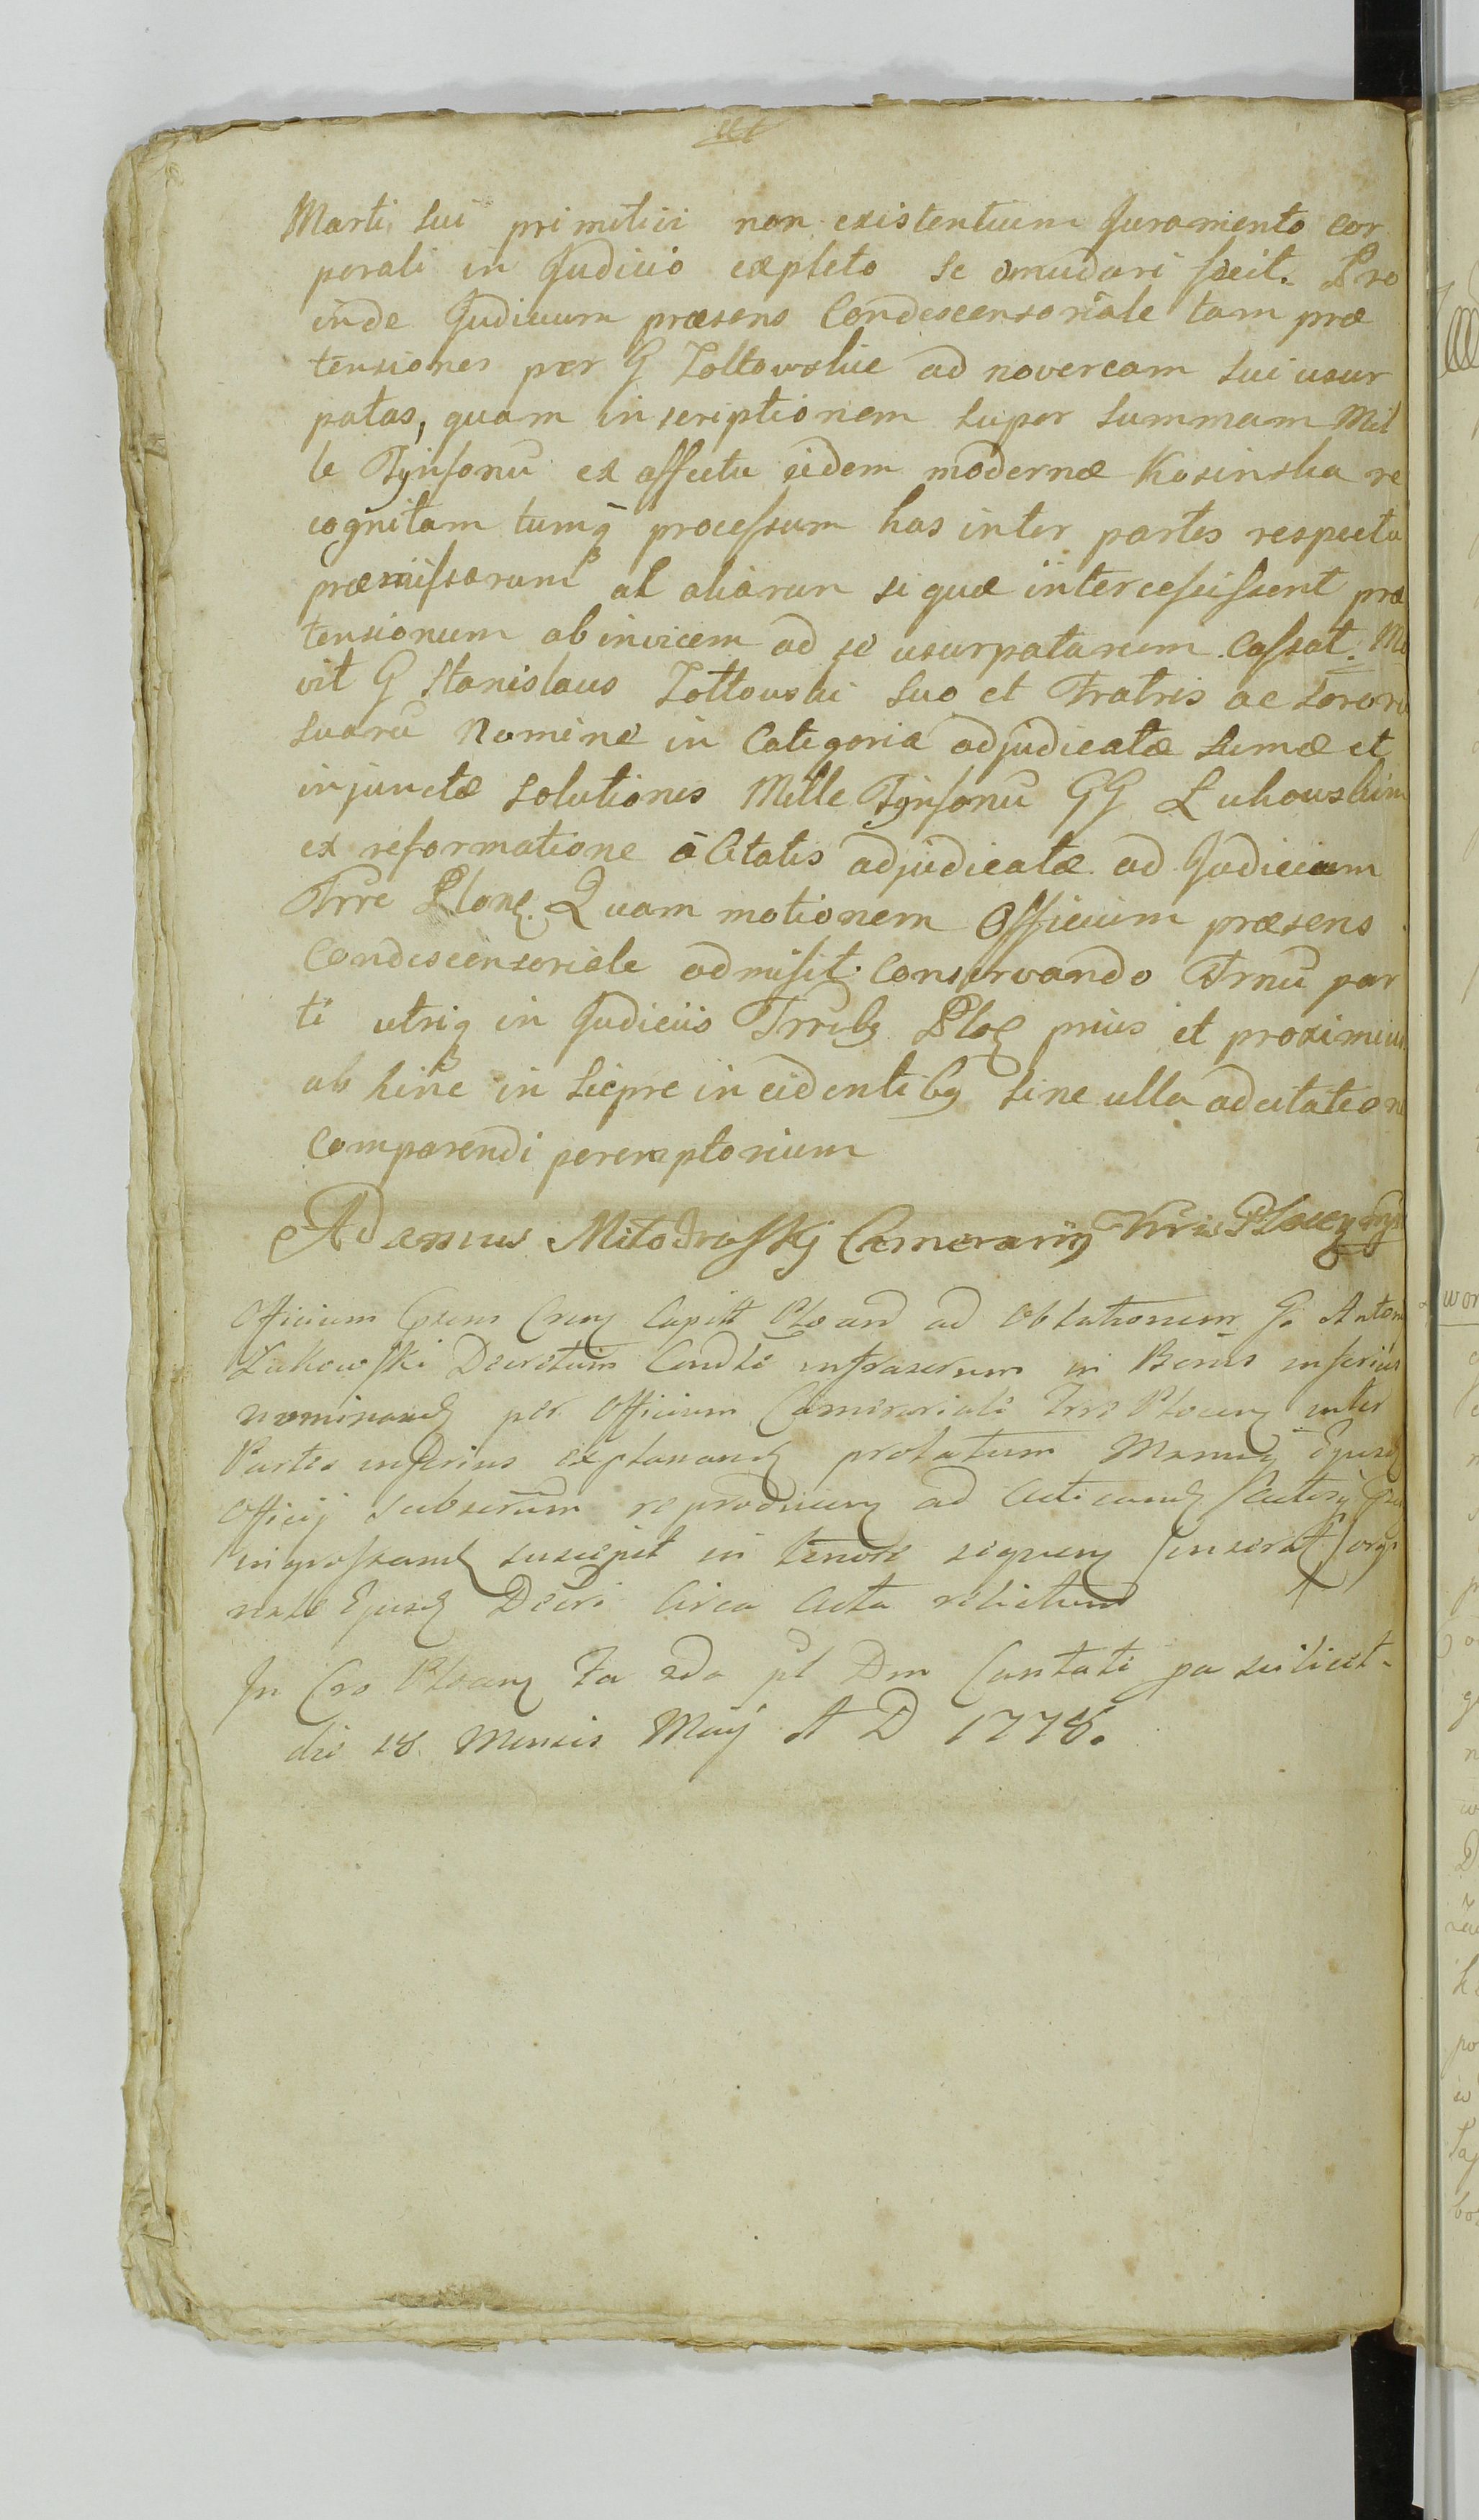 Marti sui primitivi non existentium Juramento cor
porali in Judicio expleto se emudari fecit. Pro
inde Judicium præsens Condescensoriale tam præ
tensiones per G Zołtowskie ad novercam sui usur
patas, quam inscriptionem super summam Mil
le Tynfonū ex affectu eidem modernæ Kosinska re
cognitam tumq processum has inter partes respectu
præmissarum al aliarum si quæ intercessissent præ
tensionum ab invicem ad se usurpatarum Cassat. Mo
vit G Stanislaus Zołtowski suo et Fratris ac soror
suarū Nomine in Categoria adjudicatæ sumæ et
injunctæ solutionis Mille Tynfonū GG Łukowskim
ex reformatione adjudicatæ ad Judicium
Trre Quam motionem Officium præsens
Condescensoriale admisit. Conservando Trnū par
ti utriq in Judiciis Trrlbg Ploc prius et proximius
ab hinc in Siepre incidentibg sine ulla adcitatione
Comparendi peremptorium
Adamus Camerariis Trris Plocen
Officium Capitt ad Oblationem G. Anton
Łukowski Decretum in Bonis inferius
nominand per Officium Camerariale Trre Plocen inter
Partes inferius explanand prolatum Manuq Ejusd
Officij ad acticand
ingrossand suscepit in tenore sequen
Ejusd Decri circa Acta relictum
In Cro Plocen Fa 2da pt Dm Cantate pa scilicet
die 18 Mensis Maij A D 1778.